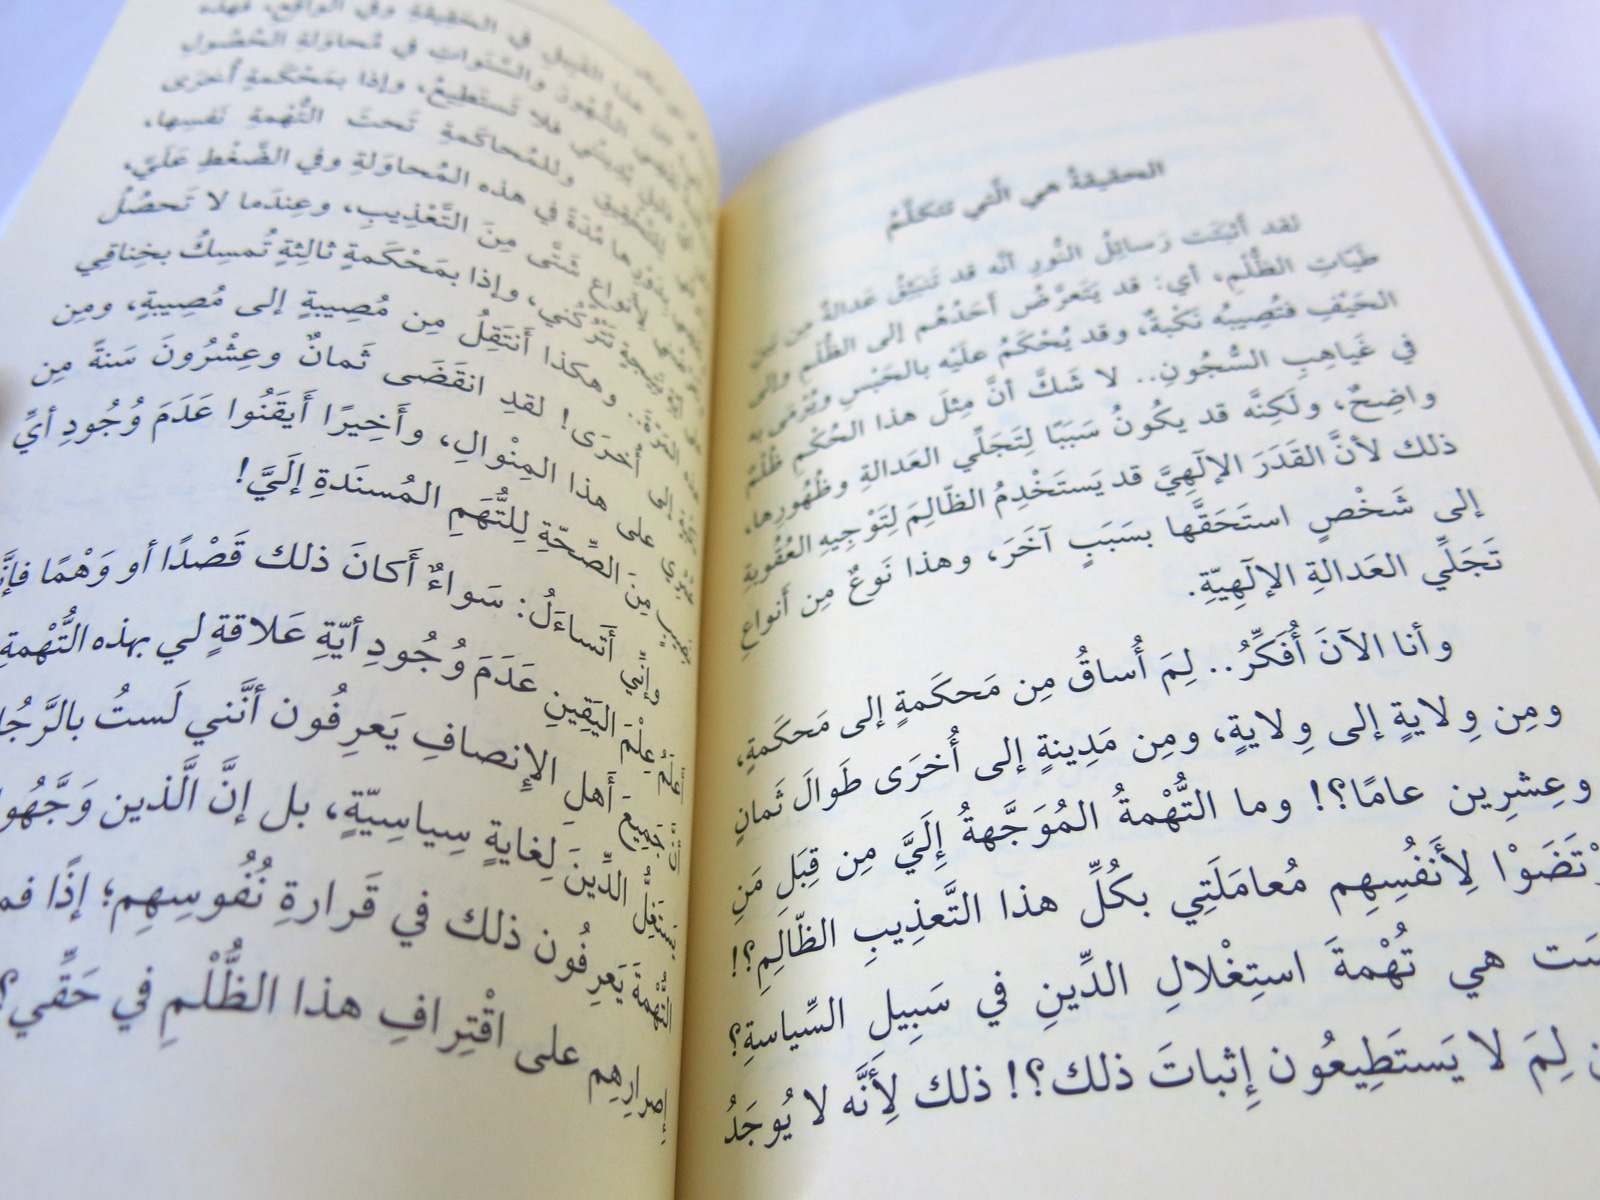 الحقيقةُ هي الّتي تتكلَّمُ
لقد أثبَتَت رَسائِلُ النُّورِ أنَّه قد تَنبَثِقُ عَدالةٌ مِن بَينِ
طَيّاتِ الظُّلْمِ، أي: قد يَتَعرَّضُ أحَدُهُم إلى الظُّلْمِ وإلى
الحَيْفِ فتُصِيبُه نَكْبةٌ، وقد يُحْكَمُ علَيْه بالحَبْسِ ويُرْمَى به
في غَياهِبِ السُّجُونِ.. لا شَكَّ أنَّ مِثلَ هذا الحُكْمِ ظُلْمٌ
واضِحٌ، ولَكِنَّه قد يكُونُ سَبَبًا لِتَجَلِّي العَدالةِ وظُهُورِها،
ذلك لأنَّ القَدَرَ الإلَهِيَّ قد يَستَخْدِمُ الظّالِمَ لِتَوْجِيهِ العُقُوبةِ
إلى شَخْصٍ استَحَقَّها بسَبَبٍ آخَرَ، وهذا نَوعٌ مِن أنواعِ
تَجَلِّي العَدالةِ الإلَهِيّةِ.
وأنا الآنَ أُفَكِّرُ.. لِمَ أُساقُ مِن مَحكَمةٍ إلى مَحكَمةٍ،
ومِن وِلايةٍ إلى وِلايةٍ، ومِن مَدِينةٍ إلى أُخرَى طَوالَ ثَمانٍ
وعِشرِين عامًا؟! وما التُّهْمةُ المُوَجَّهةُ إلَيَّ مِن قِبَلِ مَنِ
ارْتَضَوْا لِأَنفُسِهِم مُعامَلَتِي بكُلِّ هذا التَّعذِيبِ الظّالِمِ؟!
هي تُهْمةَ استِغْلالِ الدِّينِ في سَبِيلِ السِّياسةِ؟
لِمَ لا يَستَطِيعُون إثباتَ ذلك؟! ذلك لِأَنَّه لا يُوجَدُ
هذا القَبِيلِ في الحَقيقةِ وفي الواقِعِ، فهذه
الشُّهُورَ والسَّنَواتِ في مُحاوَلةِ الحُصُولِ
دليلٍ يُدِينُني فلا تَستَطِيعُ، وإذا بمَحْكَمةٍ أُخرَى
للتَّحقيقِ وللمُحاكَمةِ تَحتَ التُّهْمةِ نَفسِها،
بدَوْرِها مُدّةً في هذه المُحاوَلةِ وفي الضَّغْطِ علَيَّ،
لِأنواعٍ شَتَّى مِنَ التَّعْذِيبِ، وعِندَما لا تَحصُلُ
نَتِيجةٍ تَتْرُكُني، وإذا بمَحْكَمةٍ ثالِثةٍ تُمسِكُ بخِناقِي
هذه المَرّةَ.. وهكذا أَنتَقِلُ مِن مُصِيبةٍ إلى مُصِيبةٍ، ومِن
إلى أُخرَى! لقدِ انقَضَى ثَمانٌ وعِشْرُونَ سَنةً مِن
على هذا المِنْوالِ، وأَخِيرًا أَيقَنُوا عَدَمَ وُجُودِ أيِّ
مِنَ الصِّحّةِ لِلتُّهَمِ المُسنَدةِ إلَيَّ!
وإنِّي أَتَساءَلُ: سَواءٌ أَكانَ ذلك قَصْدًا أو وَهْمًا
عِلْمَ اليَقِينِ عَدَمَ وُجُودِ أيّةِ عَلاقةٍ لي بهذه التُّهْمةِ
جَمِيعَ أَهلِ الإنصافِ يَعرِفُون أنَّني لَستُ
يَستَغِلُّ الدِّينَ لِغايةٍ سِياسِيّةٍ، بل إنَّ الَّذين
التُّهْمةَ يَعرِفُون ذلك في قَرارةِ نُفُوسِهِم؛ إذًا
إصرارِهِم على اقْتِرافِ هذا الظُّلْمِ في حَقِّي؟